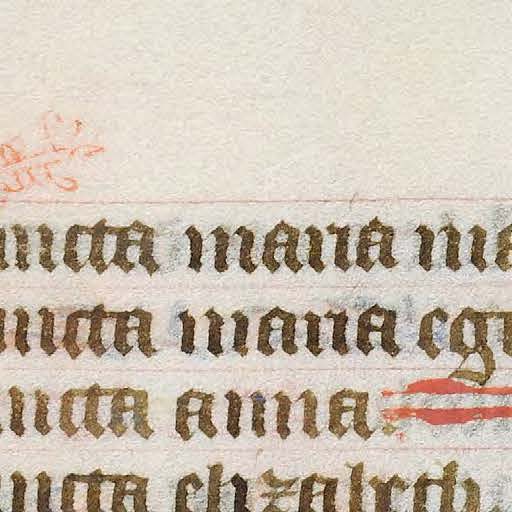 ancta maria ma
ancta maria egi
ancta anna.
ancta elizabeth